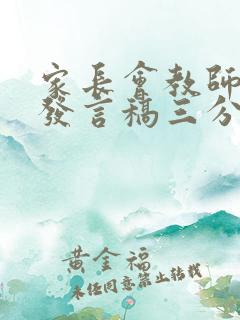 家長會教師
發言稿三分
黃金福
未經同意禁止轉載